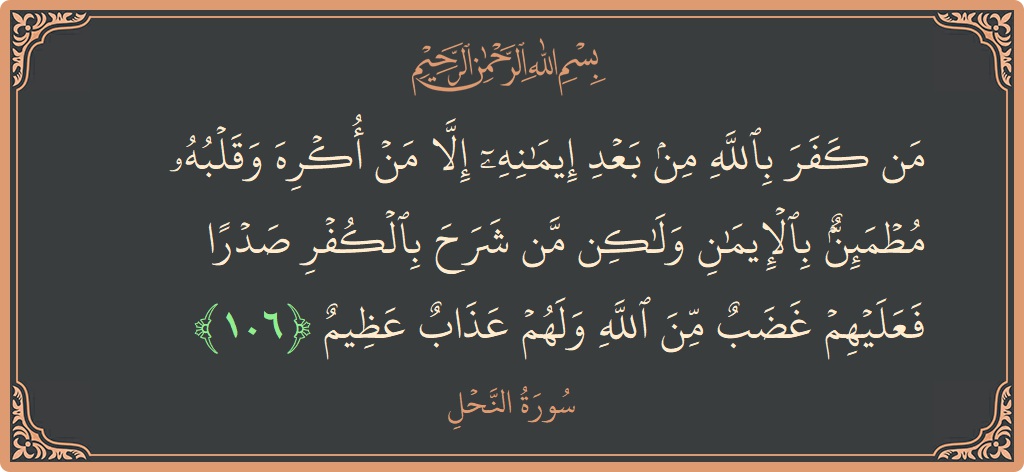 بِسْمِ اللَّهِ الرَّحْمَٰنِ الرَّحِيمِ
مَن كَفَرَ بِٱللَّهِ مِنۢ بَعْدِ إِيمَـٰنِهِۦٓ إِلَّا مَنْ أُكْرِهَ وَقَلْبُهُۥ
مُطْمَئِنٌّۢ بِٱلْإِيمَـٰنِ وَلَـٰكِن مَّن شَرَحَ بِٱلْكُفْرِ صَدْرًا
فَعَلَيْهِمْ غَضَبٌ مِّنَ ٱللَّهِ وَلَهُمْ عَذَابٌ عَظِيمٌ ﴿١٠٦﴾
سُورَةُ النَّحْلِ